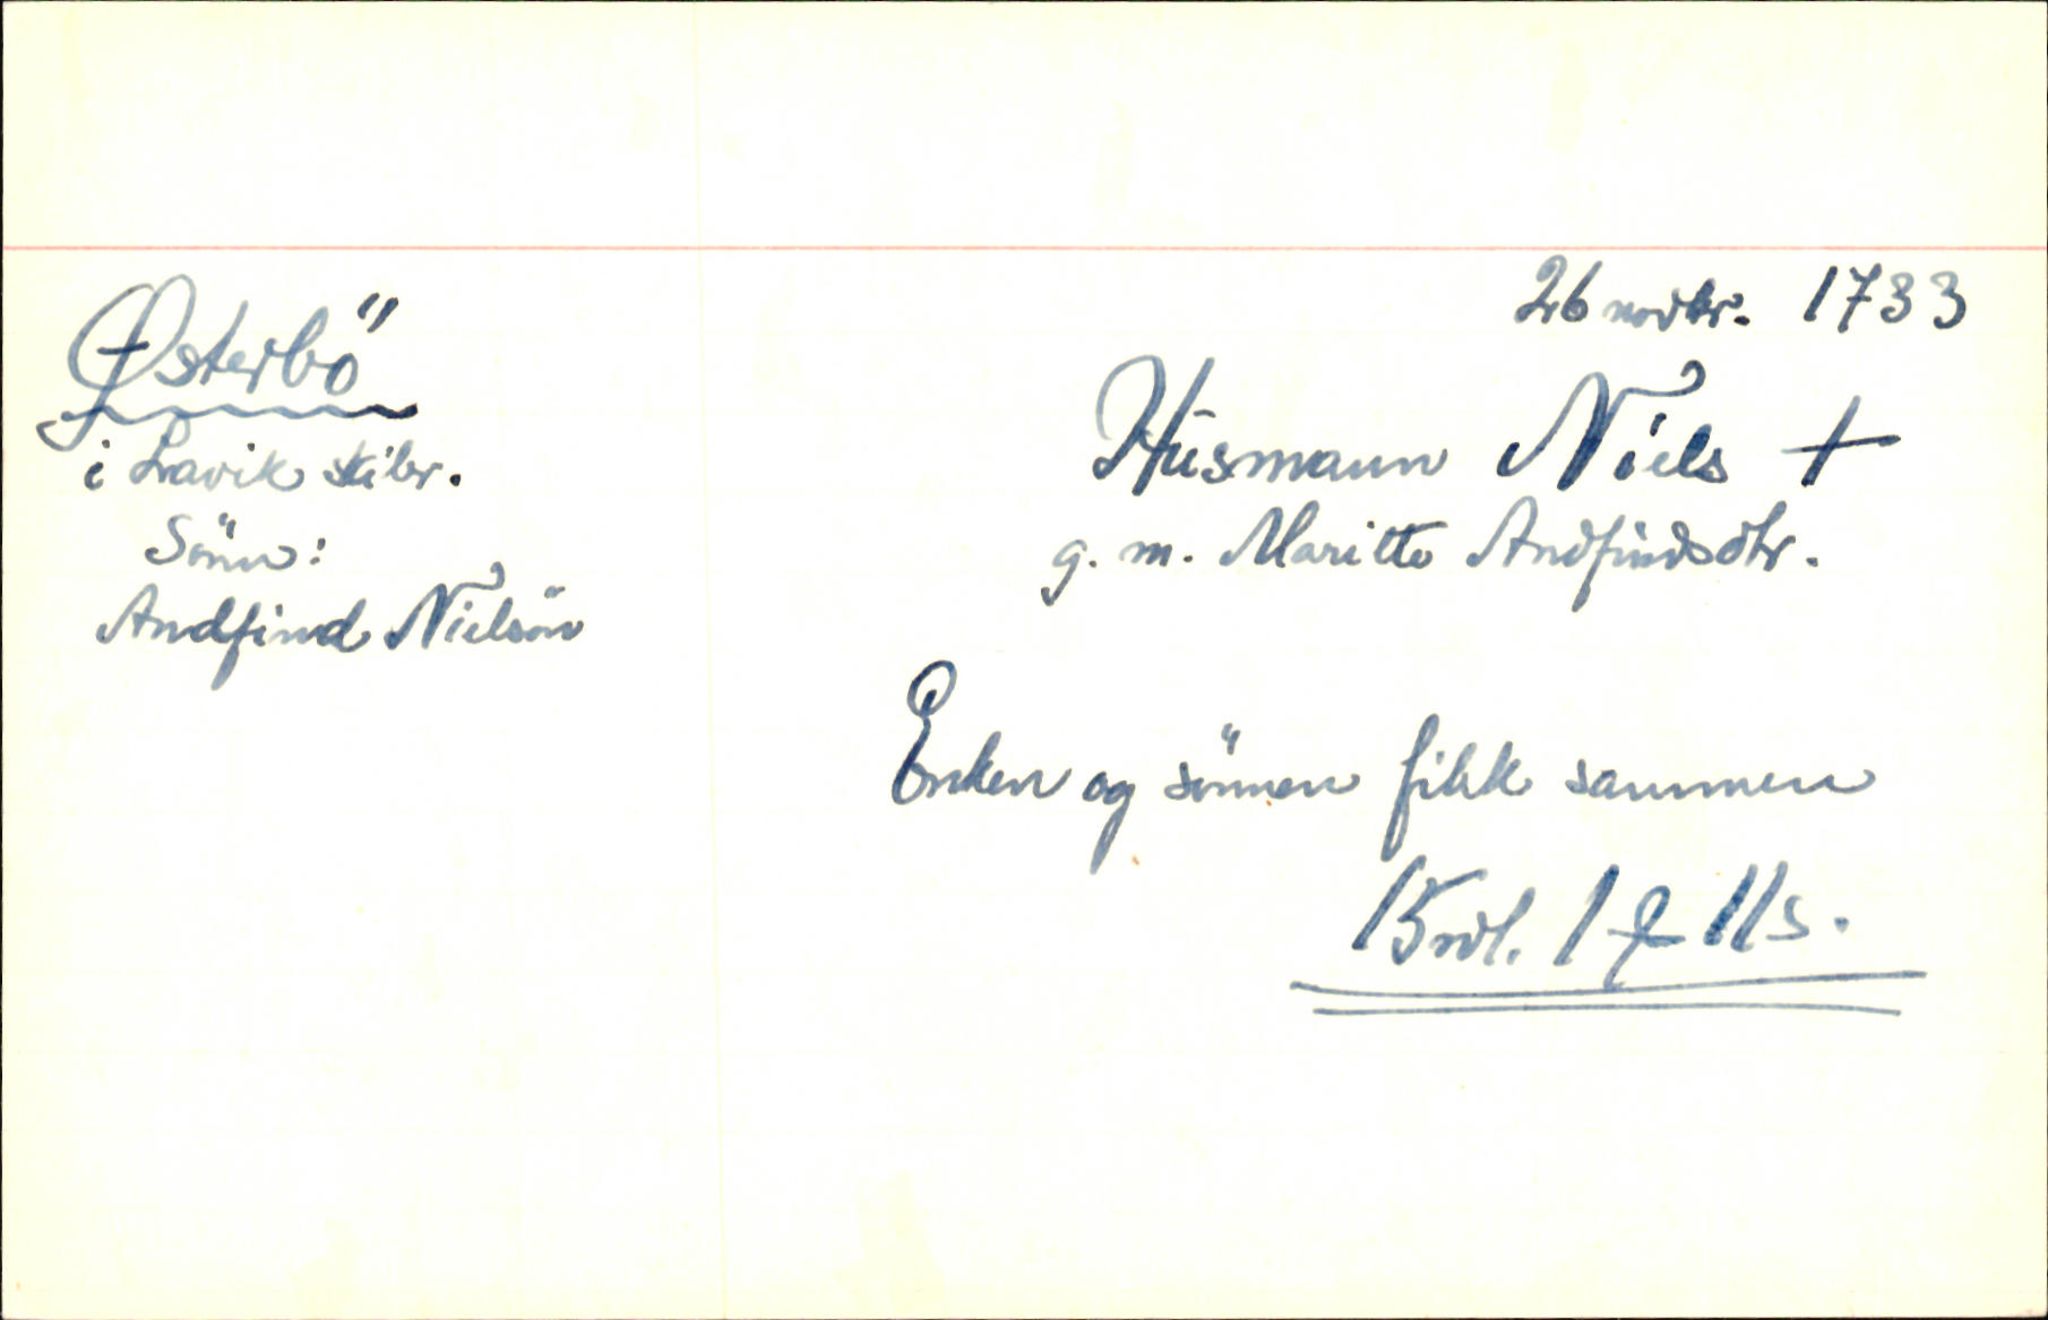 26 novbr. 1733
Østerbö
i Lavik skibr.
Sönn:
Andfind Nielsön
Husmann Niels †
g. m. Maritte Andfindsdtr.
Enken og sönnen fikk sammen
15 rdl. 1 ƒ 11 s.